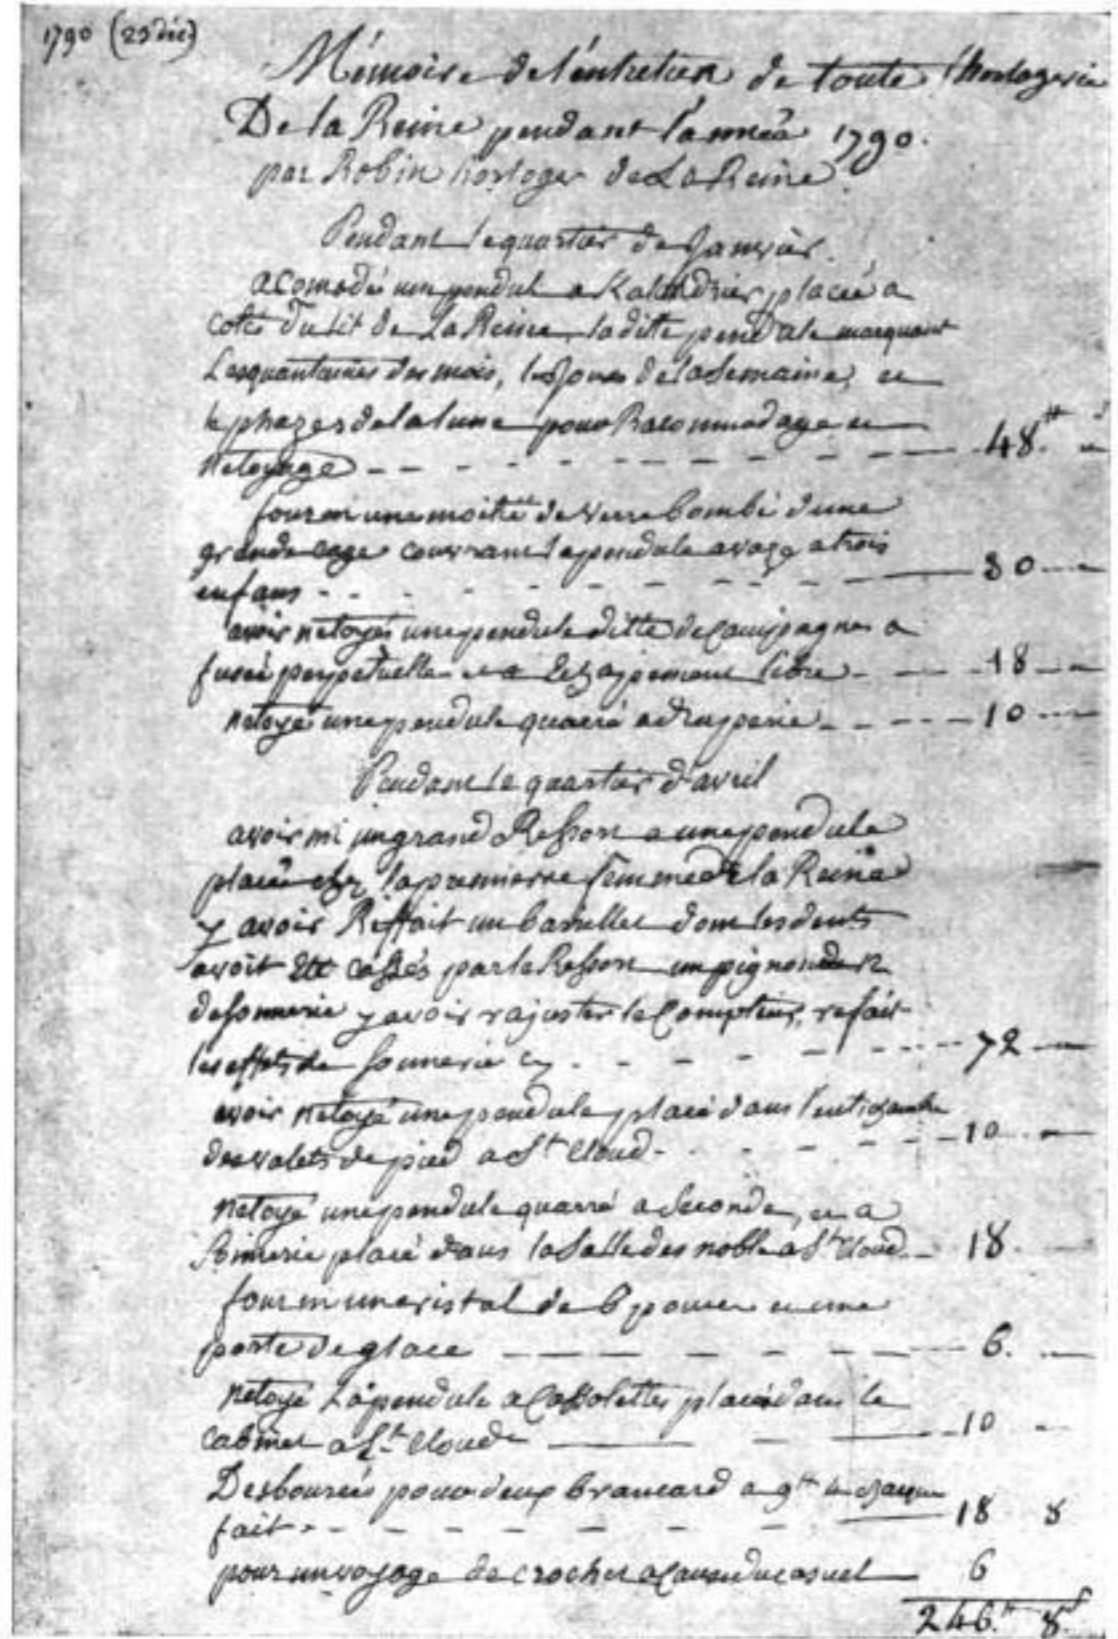 1790 (25 déc)
Mémoire de l'entretien de toute l'horlogerie
De la Reine pendant l'année 1790.
par Robin horloger de La Reine.
Pendant le quartier de Janvier.
acomodé une pendule a Kalendrier, placée a
cotés du lit de La Reine, la ditte pendule marquant
Les quantaines des mois, les Jours de la Semaine, et
le phazes de la lune pour Racommodage et
netoyage - - - 48.₶ s
fourni une moitié de verre bombé d'une
grande cage couvrant la pendule a trois
enfans - - - 30
avoir netoyés une pendule ditte de Campagne a
fusée perpetuelle et a Echappement libre - - - 18
netoyé une pendule quarré a drapperie - - - 10
Pendant le quartier d'avril
avoir mi un grand Ressort a une pendule
placé chez la premierre femme de la Reine
y avoir Reffait un barrillet dont les dents
avoit Eté cassés par le Ressort un pignon de 12
de sonnerie y avoir rajuster le Compteur, refait
les effets de sonnerie - - - 72
avoir netoyé une pendule placé dans l'entichambre
des valets de pied a St Cloud - - - 10
netoyé une pendule quarré a Seconde, et a
Sonnerie placé dans la Salle des nobles a St Cloud - 18
fourni un cristal de 6 pouces et une
porte de glace - - - 6.
netoyé La pendule a Cassolettes placé dans le
cabinet a St Cloud - - - 10
Desboursés pour deux brancard a 9₶ 4 chaque
fait - - - 18 8
pour un voyage de crochet a 6
246.₶ 8.s